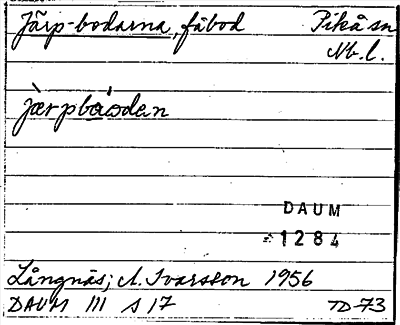 Järp-bodarna, fäbod Piteå sn
Nb. l.
jæ̀rpbåo̍dan
DAUM
1284
Långnäs; A. Ivarsson 1956
DAUM III s 17 TD-73